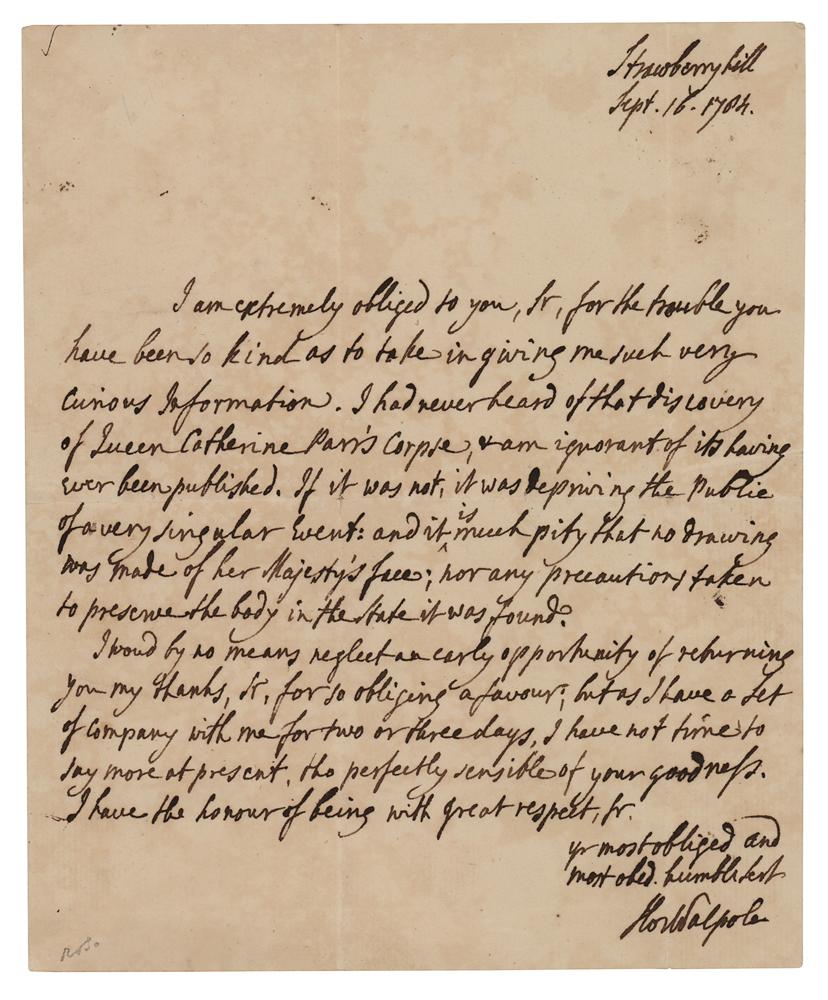 Strawberryhill
Sept. 16. 1784.
I am extremely obliged to you, Sr, for the trouble you
have been so kind as to take in giving me such very
curious Information. I had never heard of that discovery
of Queen Catherine Parr's Corpse, & am ignorant of its having
ever been published. If it was not, it was depriving the Public
of a very singular Event: and it is much pity that no drawing
was made of her Majesty's face; nor any precautions taken
to preserve the body in the state it was found.
I woud by no means neglect an early opportunity of returning
you my thanks, Sr, for so obliging a favour; but as I have a set
of company with me for two or three days, I have not time to
say more at present, tho perfectly sensible of your goodness.
I have the honour of being with great respect, Sr.
yr most obliged and
most obed. humble sert
Hor Walpole